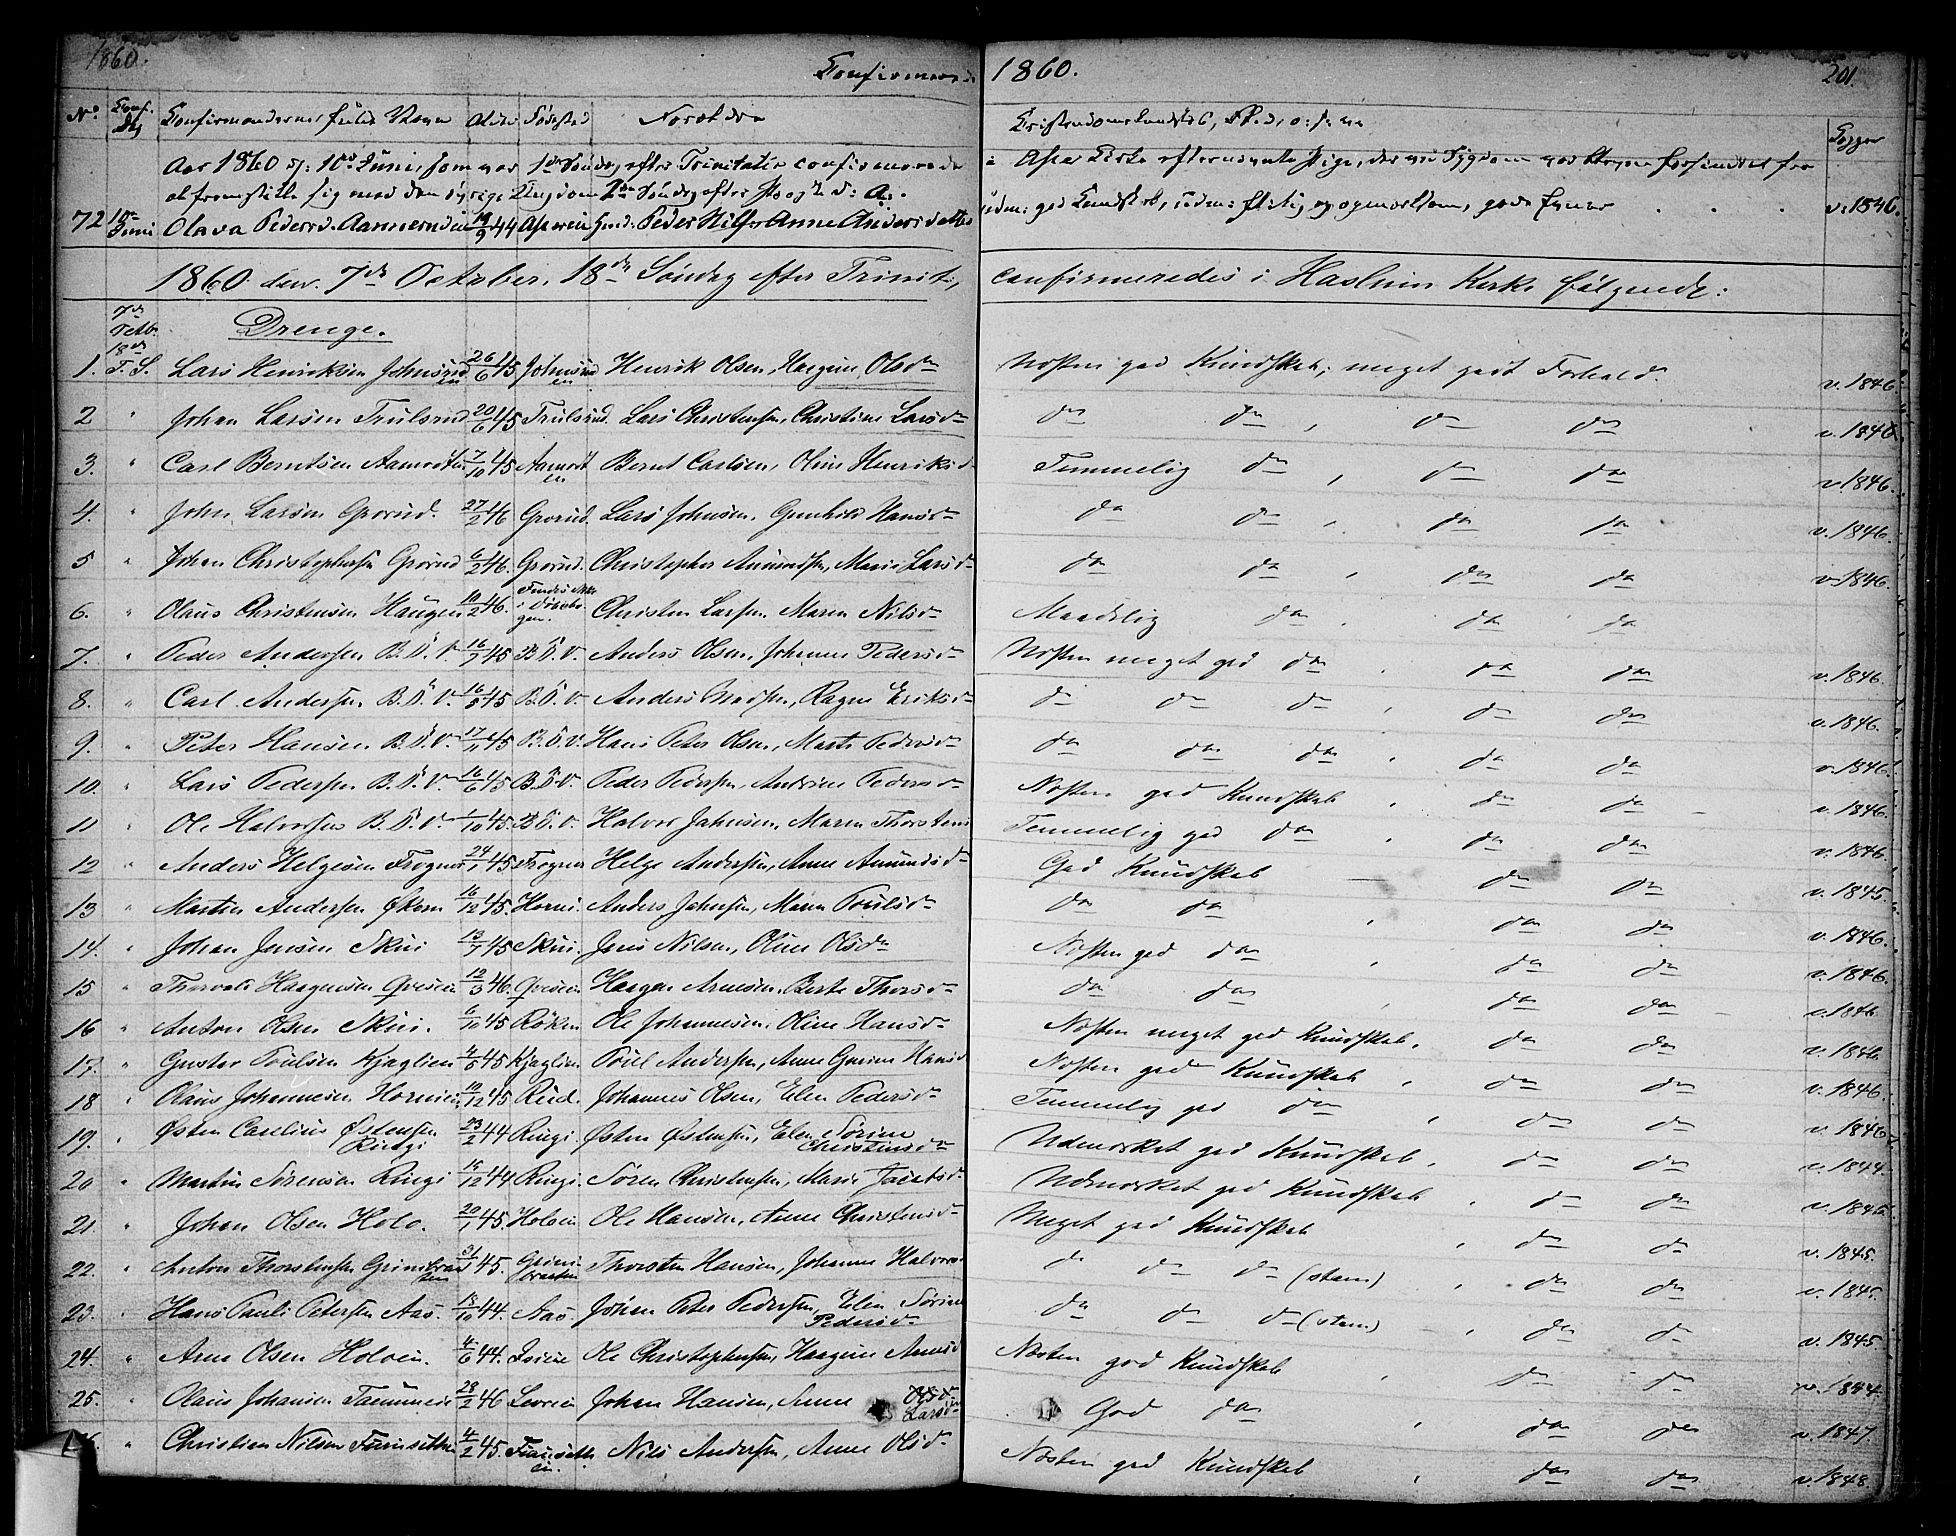 1860. Confirmerede 1860. 201.
No. Conf. Dag Confirmandernes fulde Navn Alder Fødested Forældre Christendomskundskab, Fl. d. o: s: v: Copper
Aar 1860 d: 10de Juni, som var 1ste Søndag efter Trinitatis confirmerede i Asker Kirke efternævnte Pige, der ved Sygdom var forhindret fra
at fremstille sig med den øvrige Ungdom 2den Søndag efter Paaske d: A:.
72 10de Juni Olava Pedersd. Aamernd 19/9 44 Peder Nilss. Anne Andersdatter god Kundskab, flittig og opmærksom, gode Evner . . . v. 1846.
1860 den 7de October, 18de Søndag efter Trinit., confirmeredes i Haslum Kirke følgende:
7de Octb. Drenge.
18de
1. T. S. Lars Henriksen Johnsruden 26/6 45 Johnsruden Henrik Olsen, Olsdn Næsten god Kundskab, meget godt Forhold. v. 1846.
2 " Johan Larsen Trulsrud 20/6 45 Trulsrud. Lars Christensen, Christine Larsdn do do, do do v. 1846
3. " Carl Berntsen Aamodten 7/10 45 Aamodten Bernt Carlsen, Oline Henriksd Temmelig do, do do v. 1846.
4. " John Larsen Grorud. 27/2 46 Grorud. Lars Johnsen, Gunhild Hansdn do do, do do v. 1846.
5 " Johan Christophersen Grorud 6/2 46. Grorud. Christopher Amundsen, Marie Larsdn do do, do do v 1846.
6. " Olaus Christensen Haugen 10/2 46. Christen Larsen, Maren Nilsdn Maadelig do, do do
7. " Peder Andersen B.Ö.V. 16/7 45 B.Ö.V. Anders Olsen, Johanne Pedersdn Næsten meget god do, do do v. 1846.
8. " Carl Andersen B.Ö.V. 16/5 45 B.Ö.V. Anders Madsen, Ragne Eriksdn do do do, do do v. 1846.
9. " Peter Hansen B.Ö.V. 17/11 45 B.Ö.V. Hans Peter Olsen, Marte Pedersdn do do do, do do v. 1846
10. " Lars Pedersen B.Ö.V. 16/6 45 B.Ö.V. Peder Pedersen, Andrine Pedersdn Næsten god Kundskab, do do v. 1846.
11 " Ole Halvorsen B.Ö.V. 1/10 45 B.Ö.V. Halvor Johnsen, Maren Thorstens Temmelig god do, do do v. 1846.
12 " Anders Helgesen Frogner 24/1 45 Frogner Helge Andersen, Anne Amundsdn God Kundskab do do v. 1845
13 " Martin Andersen Økern 16/12 45. Horni. Anders Johnsen, Maren Poulsdn do do, do do v. 1846.
14. " Johan Jensen Skui 13/7 45 Skui. Jens Nilsen, Oline Olsdn Næsten god do, do do v. 1846.
15 " Thorvald Haagensen Qvesein 12/3 46. Qvesein Haagen Arnesen, Berte Thorsdn do do, do do v. 1846
16 " Anton Olsen Skui. 6/10 45 Røken Ole Johannesen, Oline Hansdn Næsten meget god Kundskab, do do v. 1846.
17. " Gustav Poulsen Kjaglien 4/5 45 Kjaglien Poul Andersen, Anne Gurine Hansd Næsten god Kundskab, do do v. 1846.
18 " Olaus Johannesen Hornien 10/12 45 Rud. Johannes Olsen, Elen Pedersdn Temmelig god do, do do v. 1846
19. " Østen Carelius Østensen Ringi 23/2 44 Ringi. Østen Østensen, Elen Sørine Christensdn Udmærket god Kundskab, do do v. 1844.
20 " Martin Sørensen Ringi 15/12 44 Ringi. Søren Christensen, Marie Jacobsdn Udmærket god Kundskab, do do v. 1845.
21. " Johan Olsen Holo. 20/1 45. Holoen Ole Hansen, Anne Christensdn Meget god Kundskab, do do v. 1845.
22. " Anton Thorstensen Grinibraaten 31/1 45. Grinibraaten Thorsten Hansen, Johanne Halvorsd do do do (stam), do do v. 1845.
23. " Hans Pauli Petersen Aas. 15/10 44. Aas. Johan Peter Pedersen, Elen Sørine Pedersdn do do do (stam), do do v. 1845.
24. " Arne Olsen Holoen. 4/6 44. Ole Christophersen, Haagine Arnesd Næsten god Kundskab, do do v. 1844.
25. " Olaus Johansen 28/2 46 Johan Hansen, Anne Olsdn Larsdn God do, do do v. 1847.
26. " Christian Nilsen 4/2 45. Nils Andersen, Anne Olsdn Næsten god Kundskab, do do v. 1848